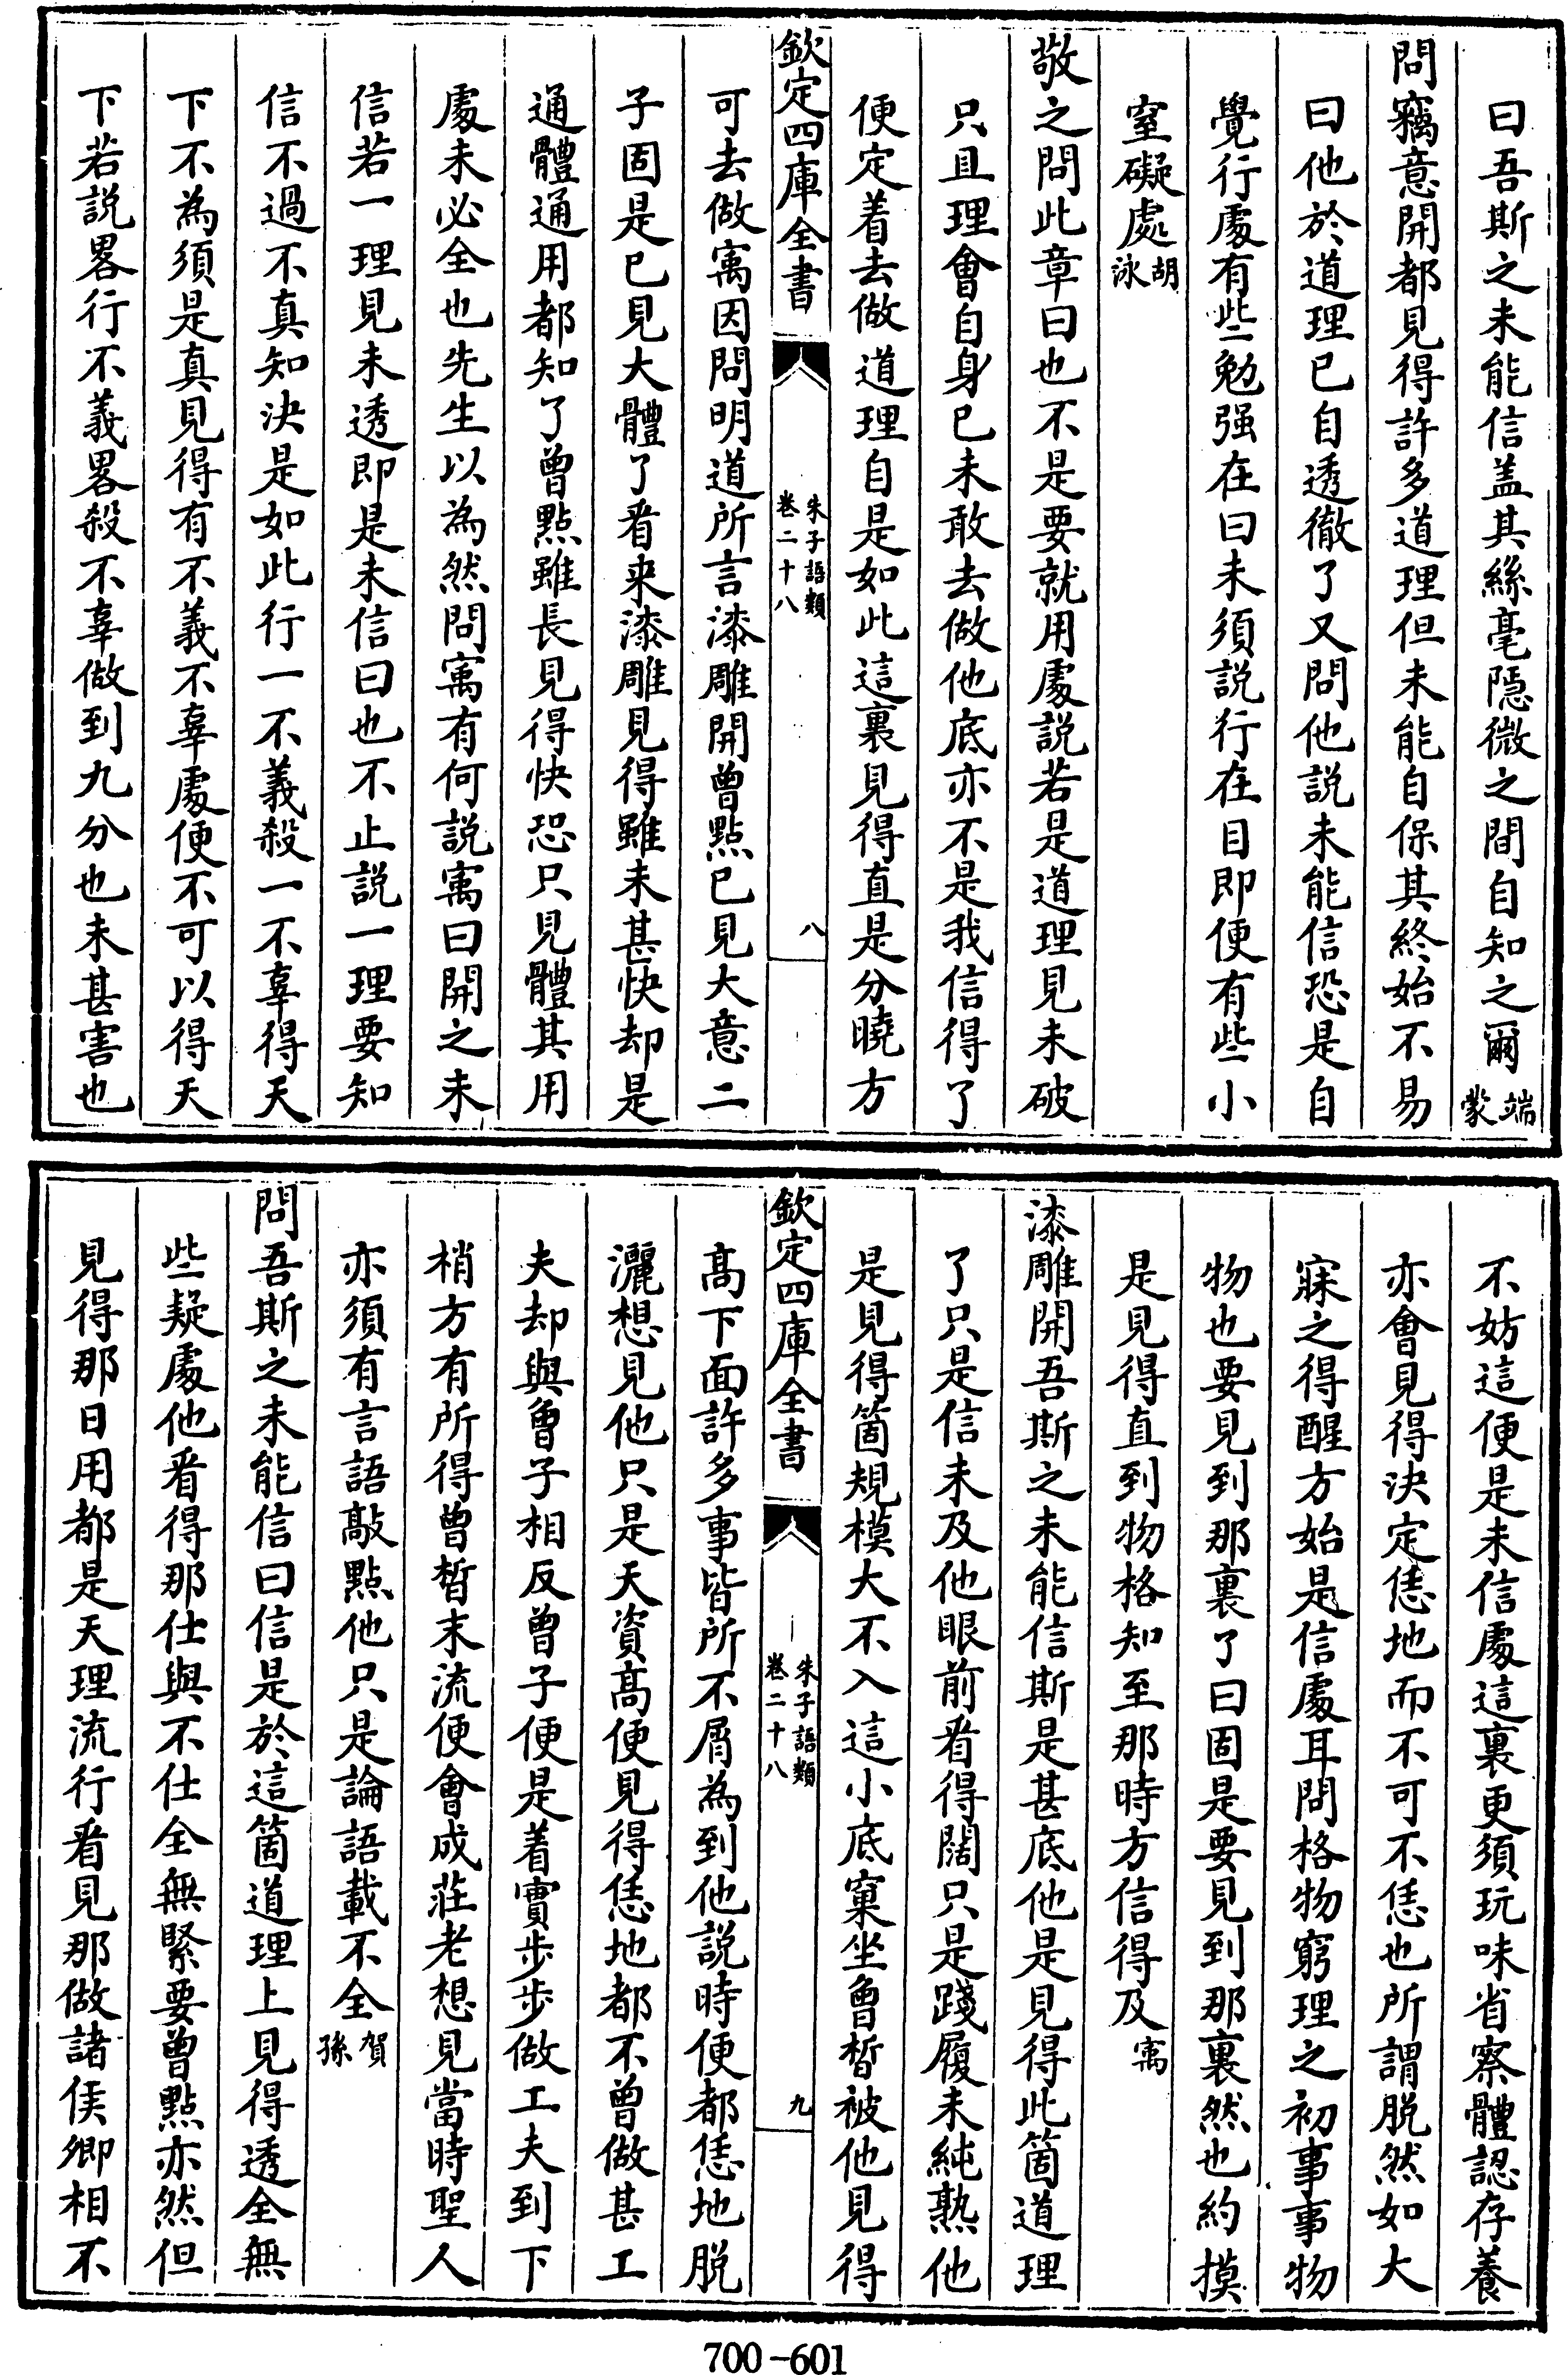 曰吾斯之未能信盖其絲毫隱微之間自知之爾端蒙
問竊意開都見得許多道理但未能自保其終始不易
曰他於道理已自透徹了又問他説未能信恐是自
覺行處有些勉强在曰未須説行在目即便有些小
窒礙處胡泳
敬之問此章曰也不是要就用處説若是道理見未破
只且理會自身已未敢去做他底亦不是我信得了
便定着去做道理自是如此這裏見得直是分曉方
欽定四庫全書
朱子語類
卷二十八
八
可去做㝢因問明道所言漆雕開曾點已見大意二
子固是已見大體了看来漆雕見得雖未甚快却是
通體通用都知了曾點雖長見得快恐只見體其用
處未必全也先生以為然問㝢有何説㝢曰開之未
信若一理見未透即是未信曰也不止説一理要知
信不過不真知決是如此行一不義殺一不辜得天
下不為須是真見得有不義不辜處便不可以得天
下若説畧行不義畧殺不辜做到九分也未甚害也
不妨這便是未信處這裏更須玩味省察體認存養
亦㑹見得決定恁地而不可不恁也所謂脱然如大
寐之得醒方始是信處耳問格物窮理之初事事物
物也要見到那裏了曰固是要見到那裏然也約摸
是見得直到物格知至那時方信得及㝢
漆雕開吾斯之未能信斯是甚底他是見得此箇道理
了只是信未及他眼前看得闊只是踐履未純熟他
是見得箇規模大不入這小底窠坐曾晳被他見得
欽定四庫全書
朱子語類
卷二十八
九
髙下面許多事皆所不屑為到他説時便都恁地脱
灑想見他只是天資髙便見得恁地都不曾做甚工
夫却與曾子相反曾子便是着實步步做工夫到下
梢方有所得曾晳末流便㑹成莊老想見當時聖人
亦須有言語敲點他只是論語載不全賀孫
問吾斯之未能信曰信是於這箇道理上見得透全無
些疑處他看得那仕與不仕全無緊要曾點亦然但
見得那日用都是天理流行看見那做諸侯卿相不
700-601